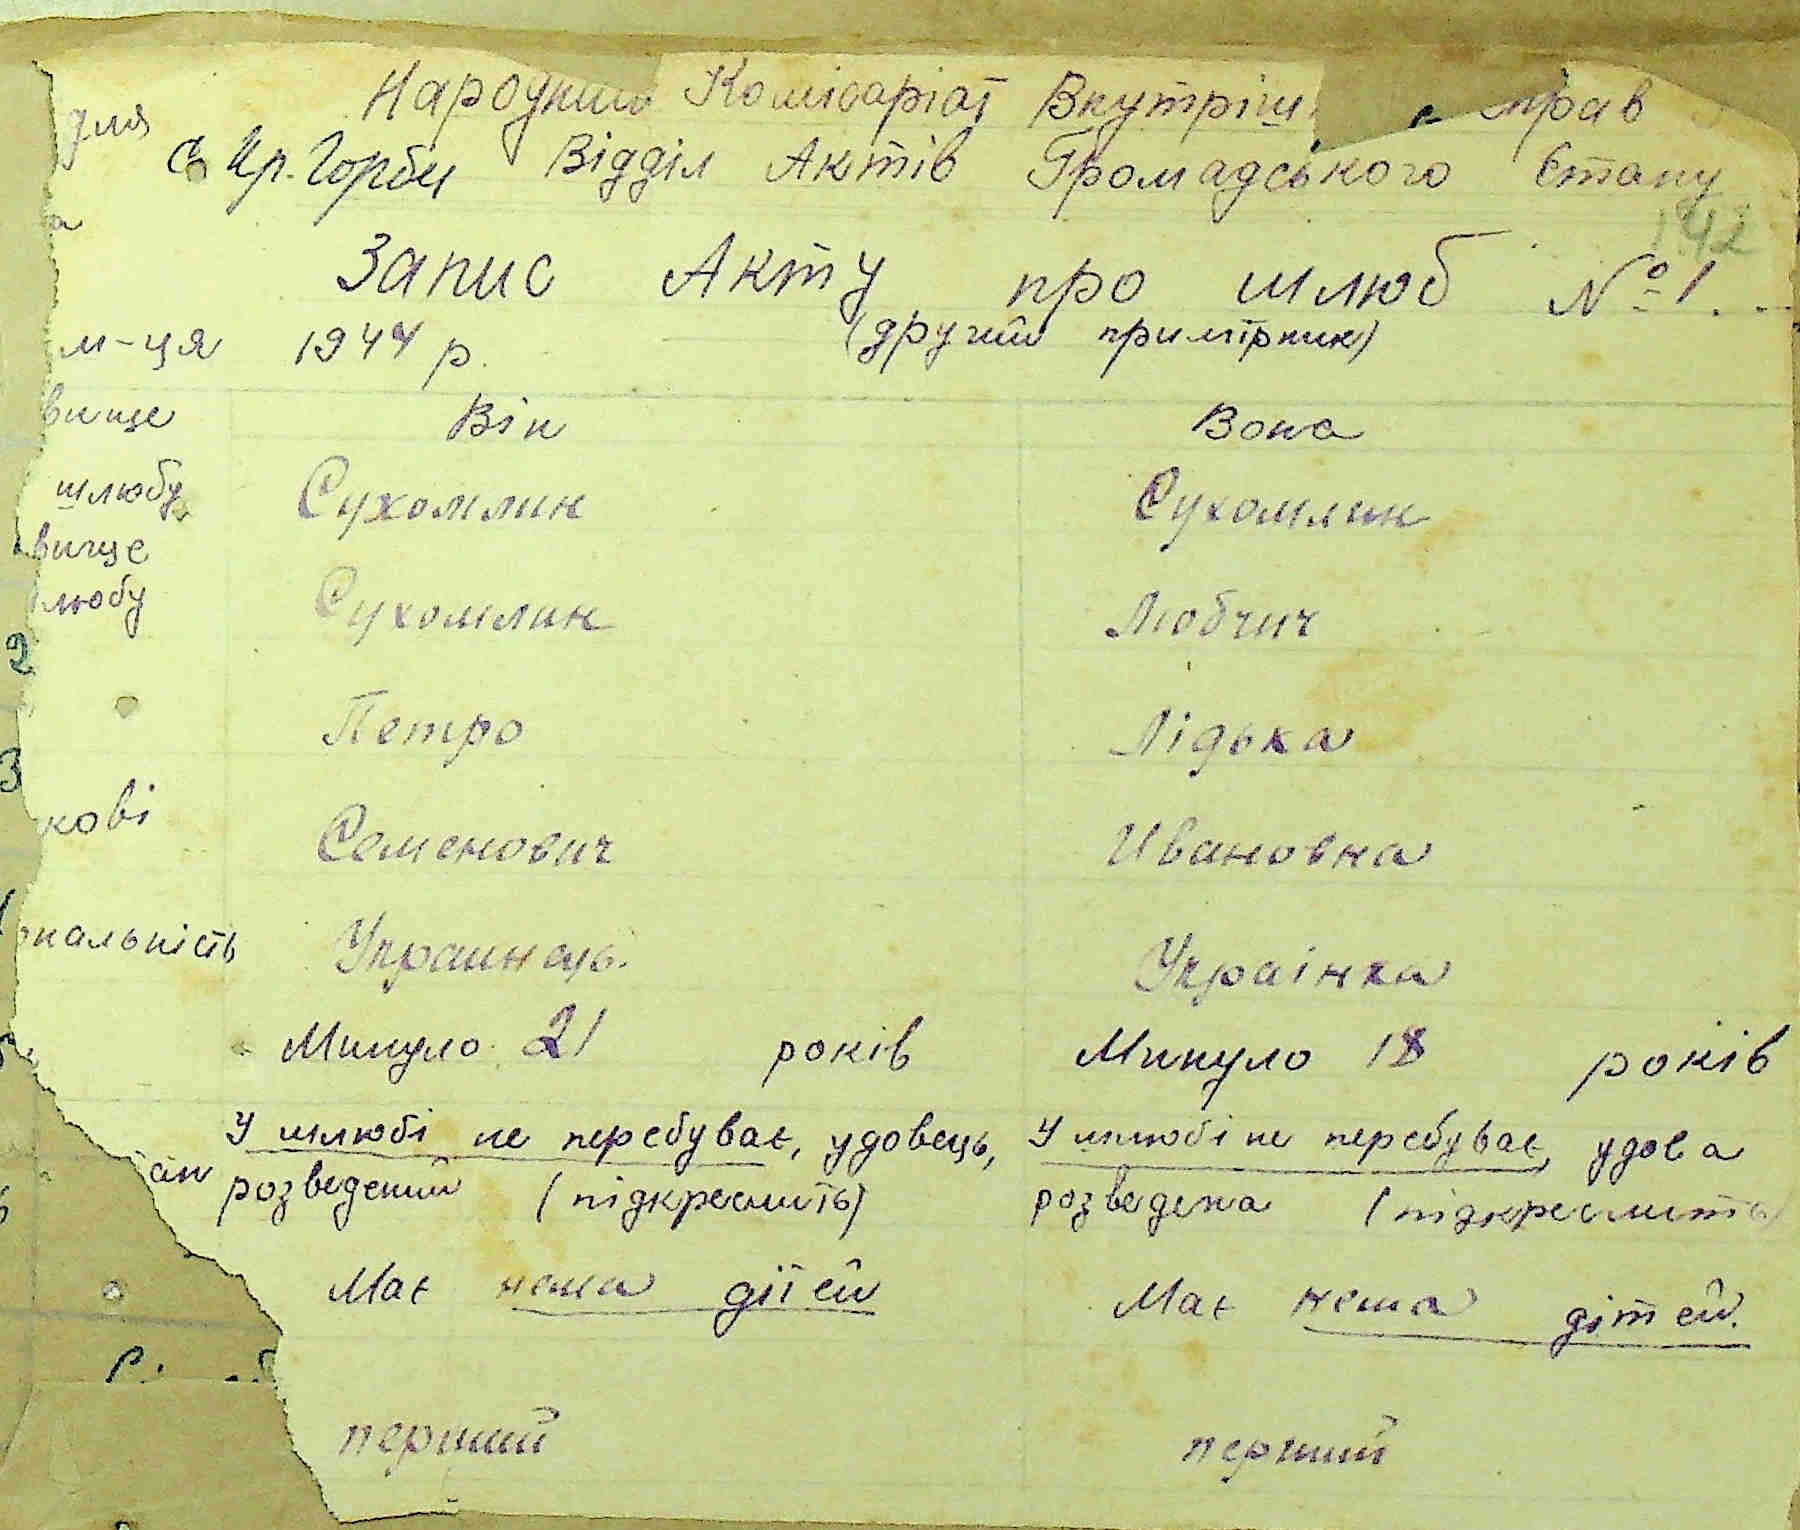 Народний Комісаріат Внутріш справ
для
с. Кр. Горби Відділ Актів Громадського Стану
а
142
Запис Акту про шлюб № 1.
м-ця 1944 р. (другий примірник)
вище Він Вона
шлюбу Сухомлин Сухомлин
вище
любу Сухомлин Любчич
2
Петро Лідька
3
кові Семенович Ивановна
нальність Украинець. Українка
Минуло 21 років Минуло 18 років
У шлюбі не перебуває, удовець, У шлюбі не перебуває, удова
ан розведений (підкреслить) розведена (підкреслить)
Має нема дітей Має нема дітей.
перший перший